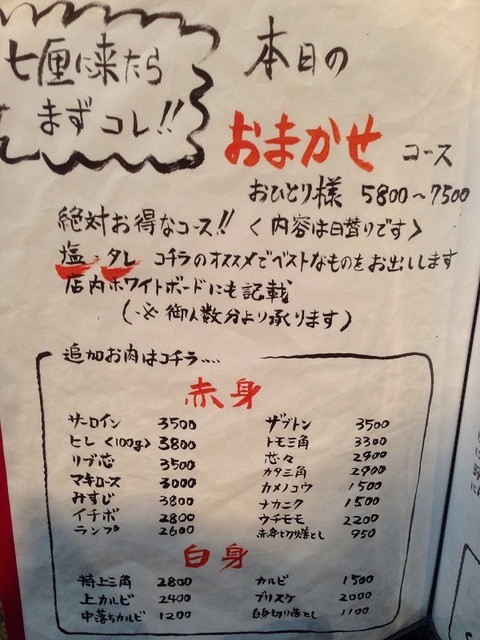 七厘に来たら
まずコレ!!
本日の
おまかせ コース
おひとり様 5800〜7500
絶対お得なコース!! <内容は日替りです>
塩・タレ コチラのオススメでベストなものをお出しします
店内ホワイトボードにも記載
(※ 御人数分より承ります)
追加お肉はコチラ....
赤身
サーロイン 3500
ヒレ <100g> 3800
リブ芯 3500
マキロース 3000
みすじ 3800
イチボ 2800
ランプ 2600
ザブトン 3500
トモ三角 3300
芯々 2900
カタ三角 2900
カメノコウ 1500
ナカニク 1500
ウチモモ 2200
赤身切り落とし 950
白身
特上三角 2800
上カルビ 2400
中落ちカルビ 1200
カルビ 1500
ブリスケ 2000
白身切り落とし 1100